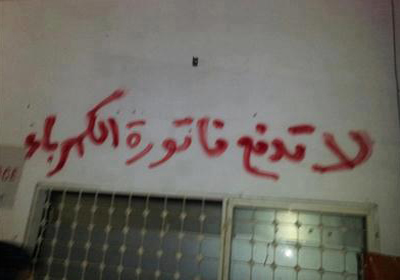 لا تدفع فاتورة الكهرباء